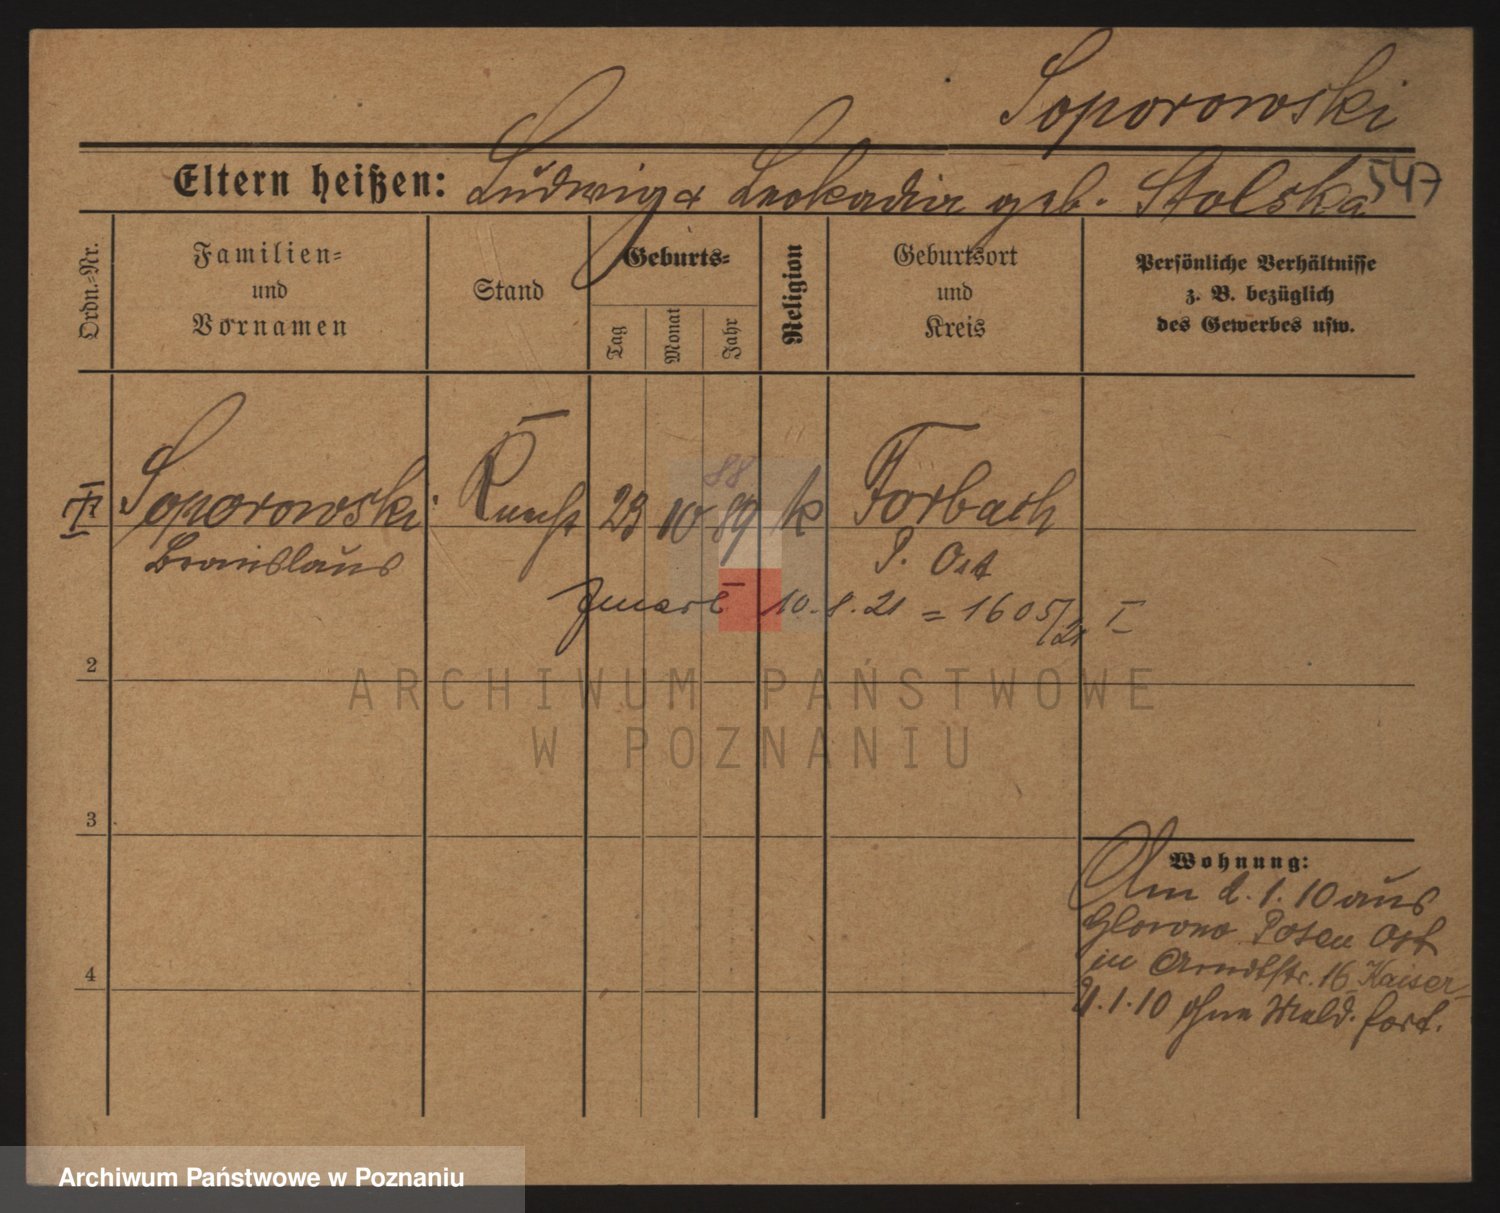 Soporowski
Eltern heißen: Ludwig & Leokadia geb. Stolska 547
Ordn.-Nr.
Familien-
und
Vornamen
Stand
Geburts-
Tag
Monat
Jahr
Religion
Geburtsort
und
Kreis
Persönliche Verhältnisse
z. B. bezüglich
des Gewerbes usw.
88
Soporowski Knecht 23 10 89 k Forbach
Bronislaus P. Ost
zmarł 10.8.21 = 1605/21 I
2
ARCHIWUM PAŃSTWOWE
W POZNANIU
3
Wohnung:
Am 2.1.10 aus
Glowno Posen Ost
in Arndtstr. 16 Kaiser
4
.1.10 ohne Meld. fort.
Archiwum Państwowe w Poznaniu